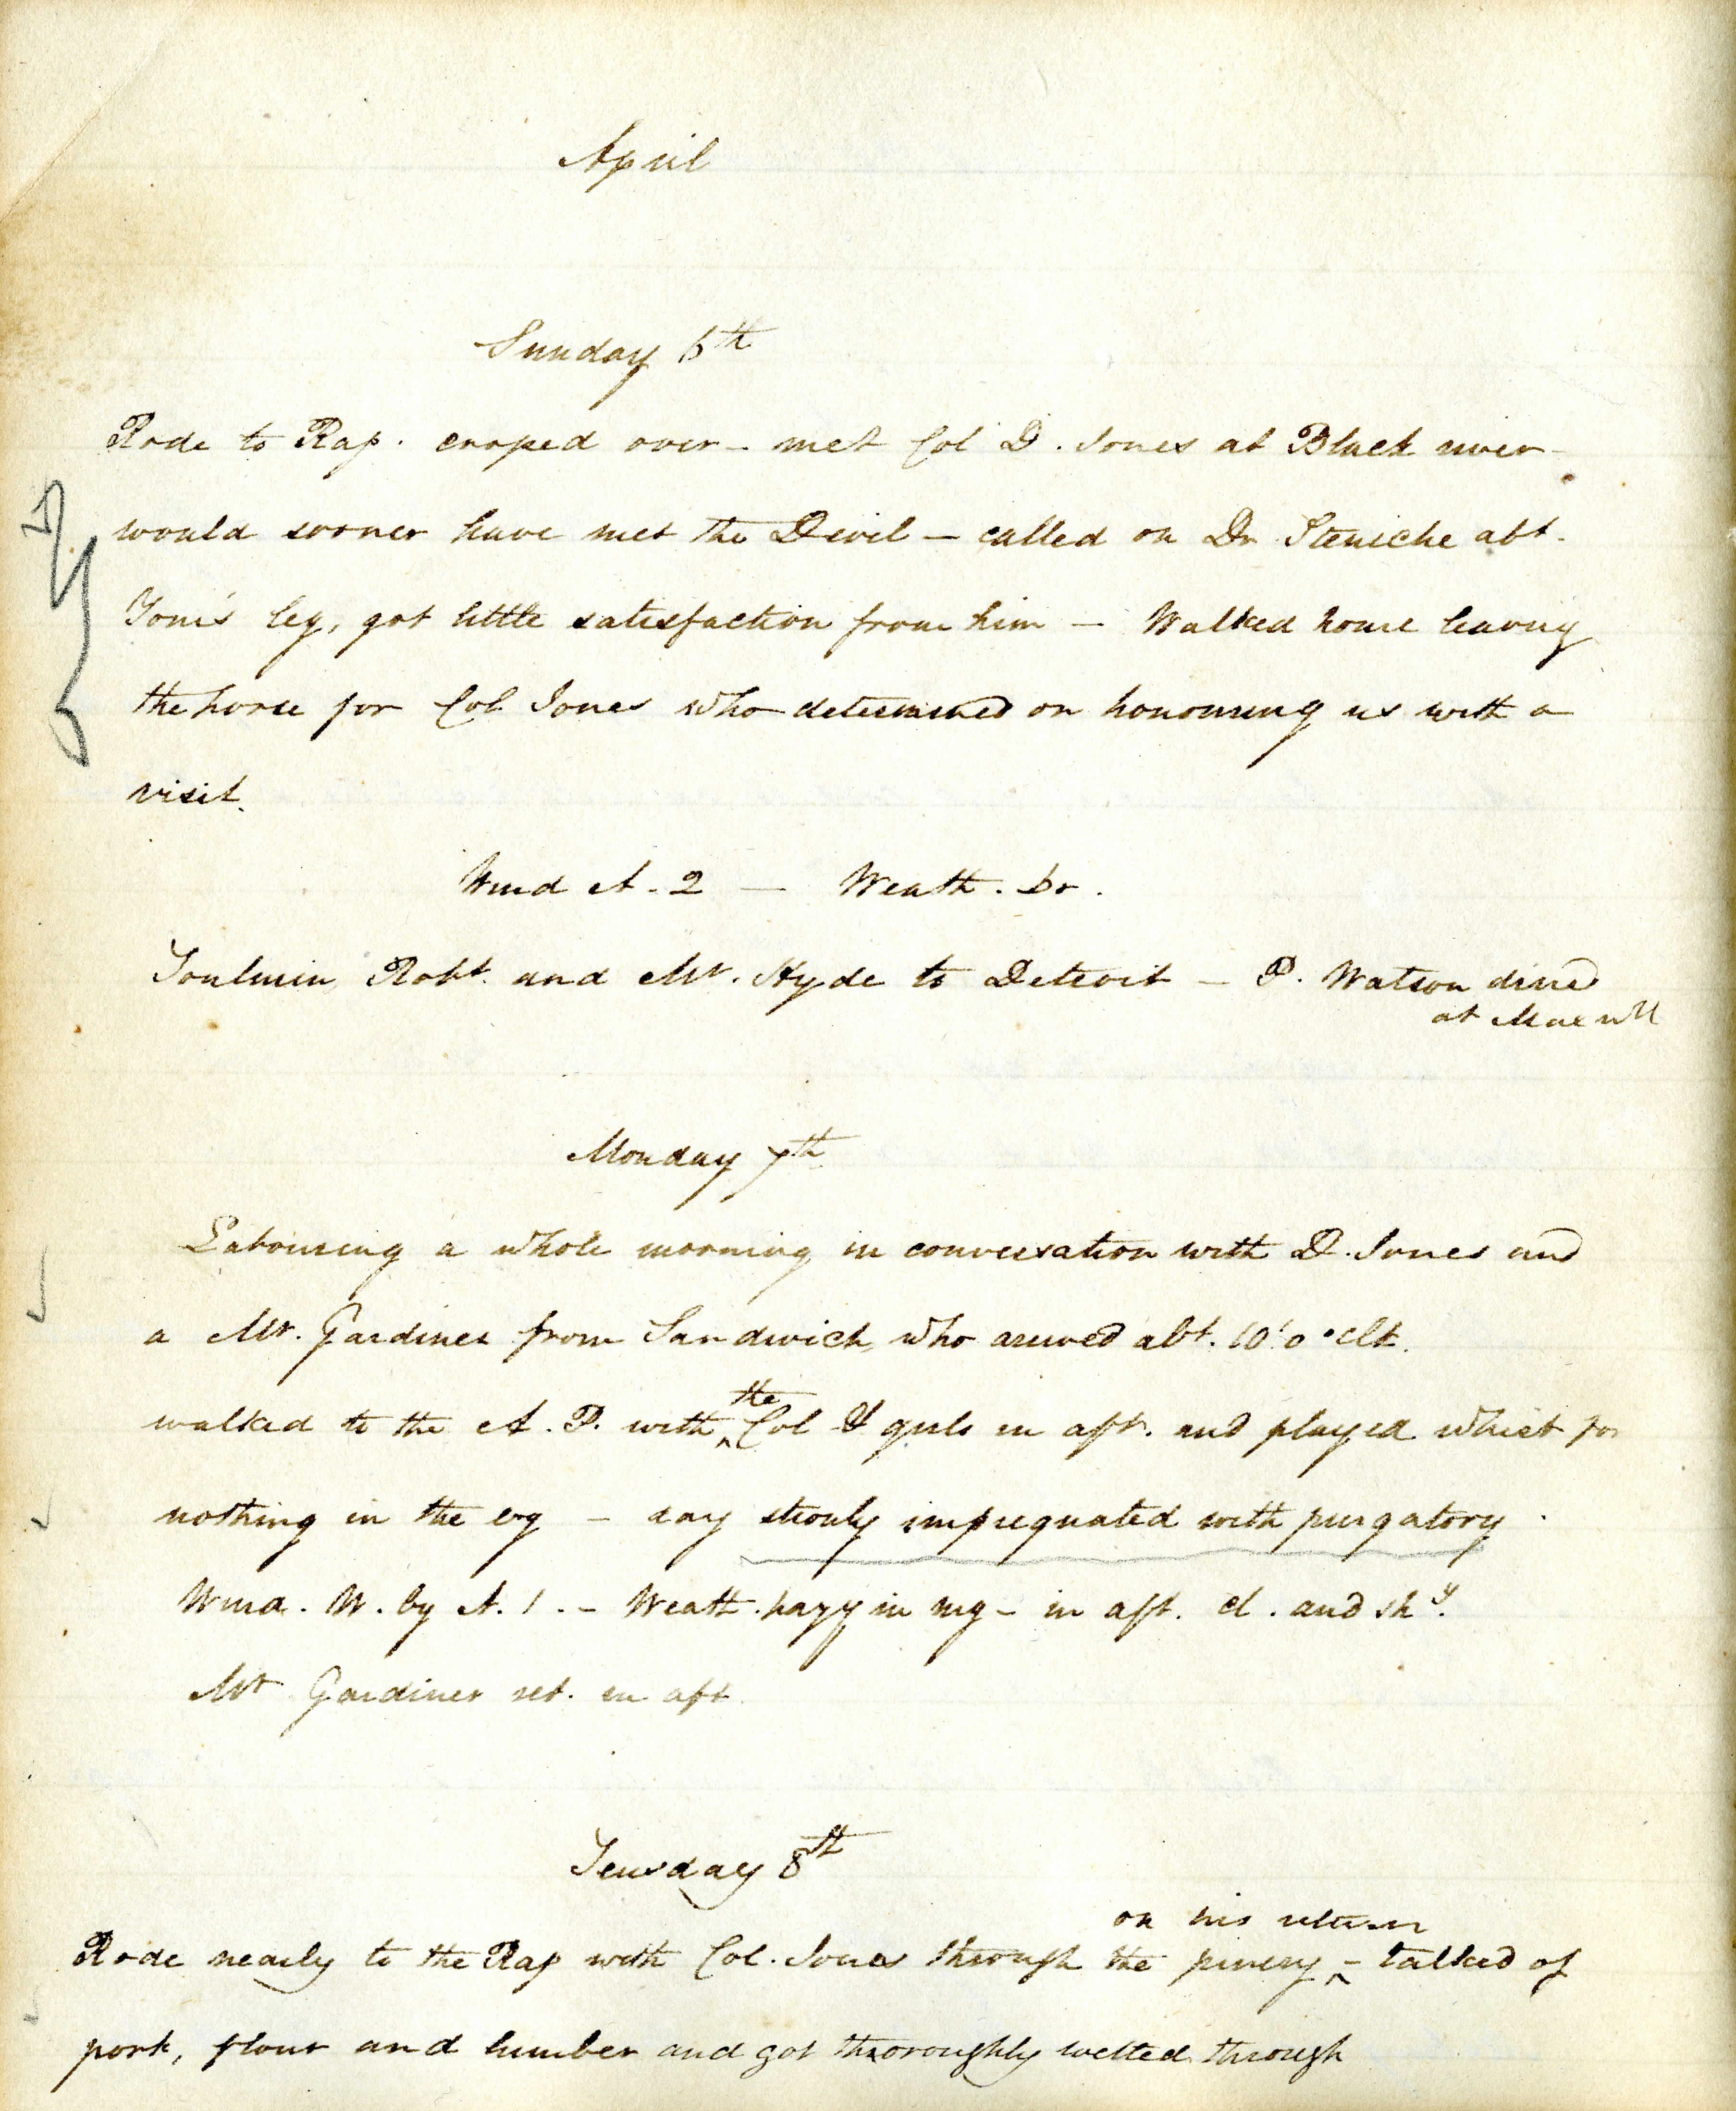 April
Sunday 6th
Rode to Rap. croped over - met Col D. Jones at Black river -
would sooner have met the Devil - called on Dr. Steniche abt.
Tom's leg, got little satisfaction from him - Walked home leaving
the horse for Col. Jones who determined on honouring us with a
visit.
Wind N. 2 - Weath. Do.
Toulmin, Robt. and Mr. Hyde to Detroit - P. Watson dined
at Maxwll
Monday 7th
Labouring a whole morning in conversation with D. Jones and
a Mr. Gardiner from Sandwich, who arrived abt. 10 o'clk.
walked to the A. P. with ^ the Col & girls in aft. and played whist for
nothing in the evg - day strouly impregnated with purgatory.
Wind. W. by N. 1. - Weath. hazy in mg - in aft. cl. and shy.
Mr Gardiner ret. in aft.
Teusday 8th
on his return
Rode nearly to the Rap with Col. Jones through the pinery ^ - talked of
pork, flour and lumber and got thoroughly wetted through